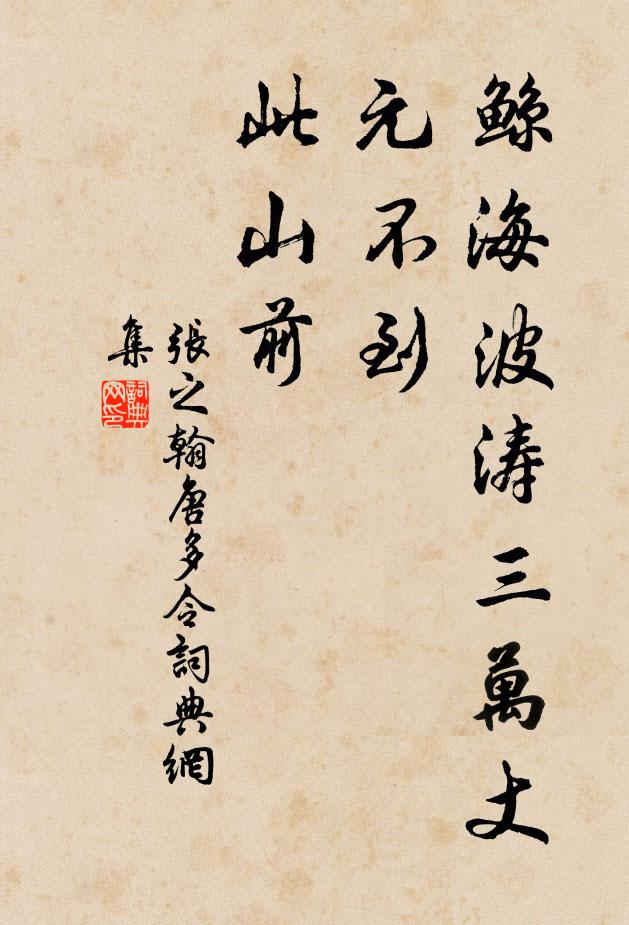 鲸海波涛三萬丈
元不到
此山前
張之翰唐多令詞典網
集
詞典
网印